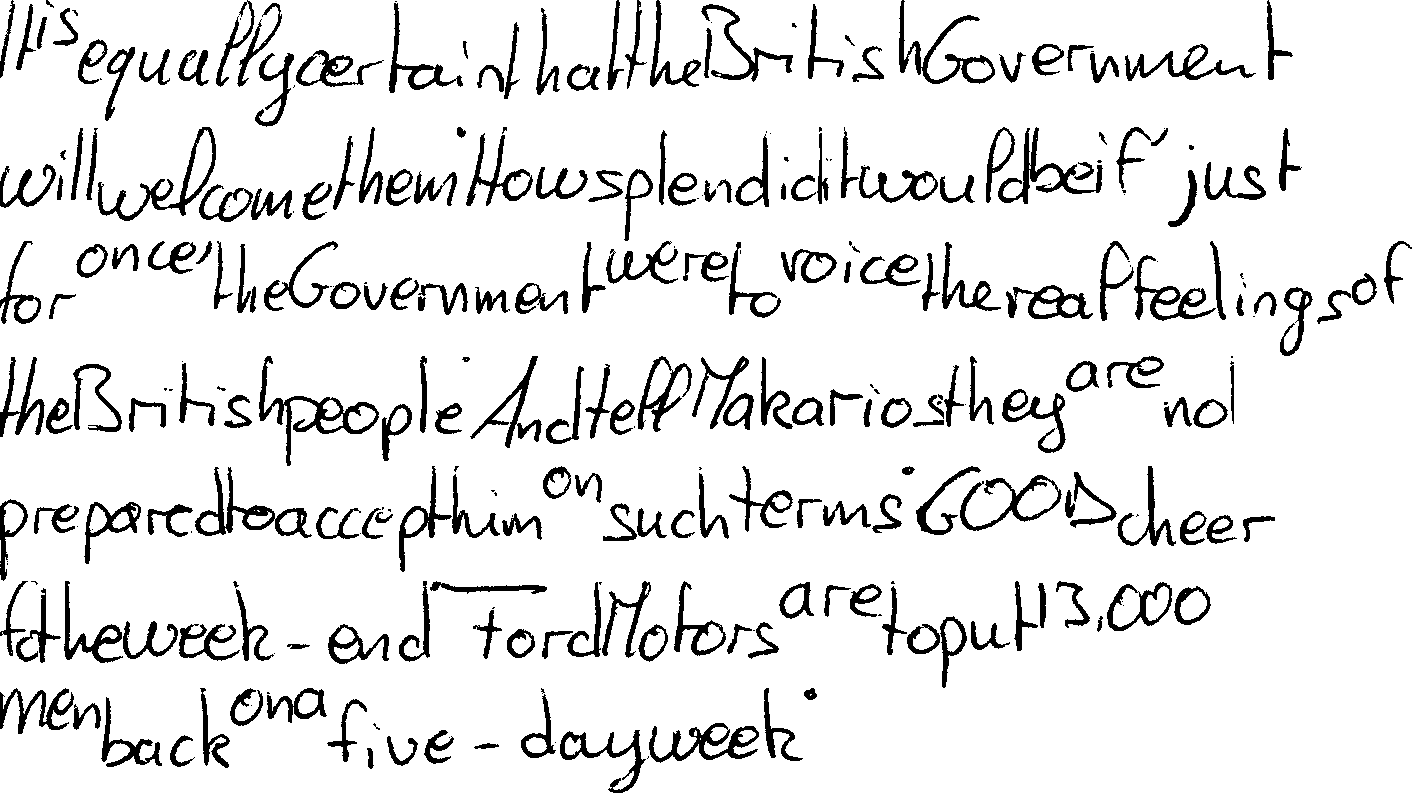 It is equally certain that the British Government
will welcome them. How splendid it would be if just
for once, the Government were to voice the real feelings of
the British people. And tell Makarios they are not
prepared to accept him on such terms. GOOD cheer
for the week-end. Ford Motors are to put 13,000
men back on a five-day week.